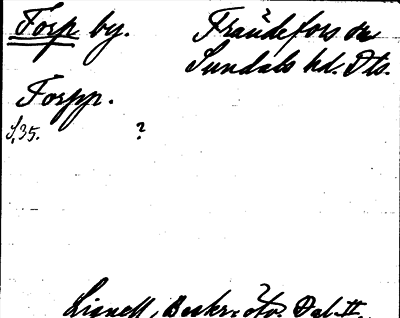 Forp by. Frändefors sn
Sundals hd. Dls.
Forpp.
S. 35. ?
Lignell, Beskr. ö. Dal II.